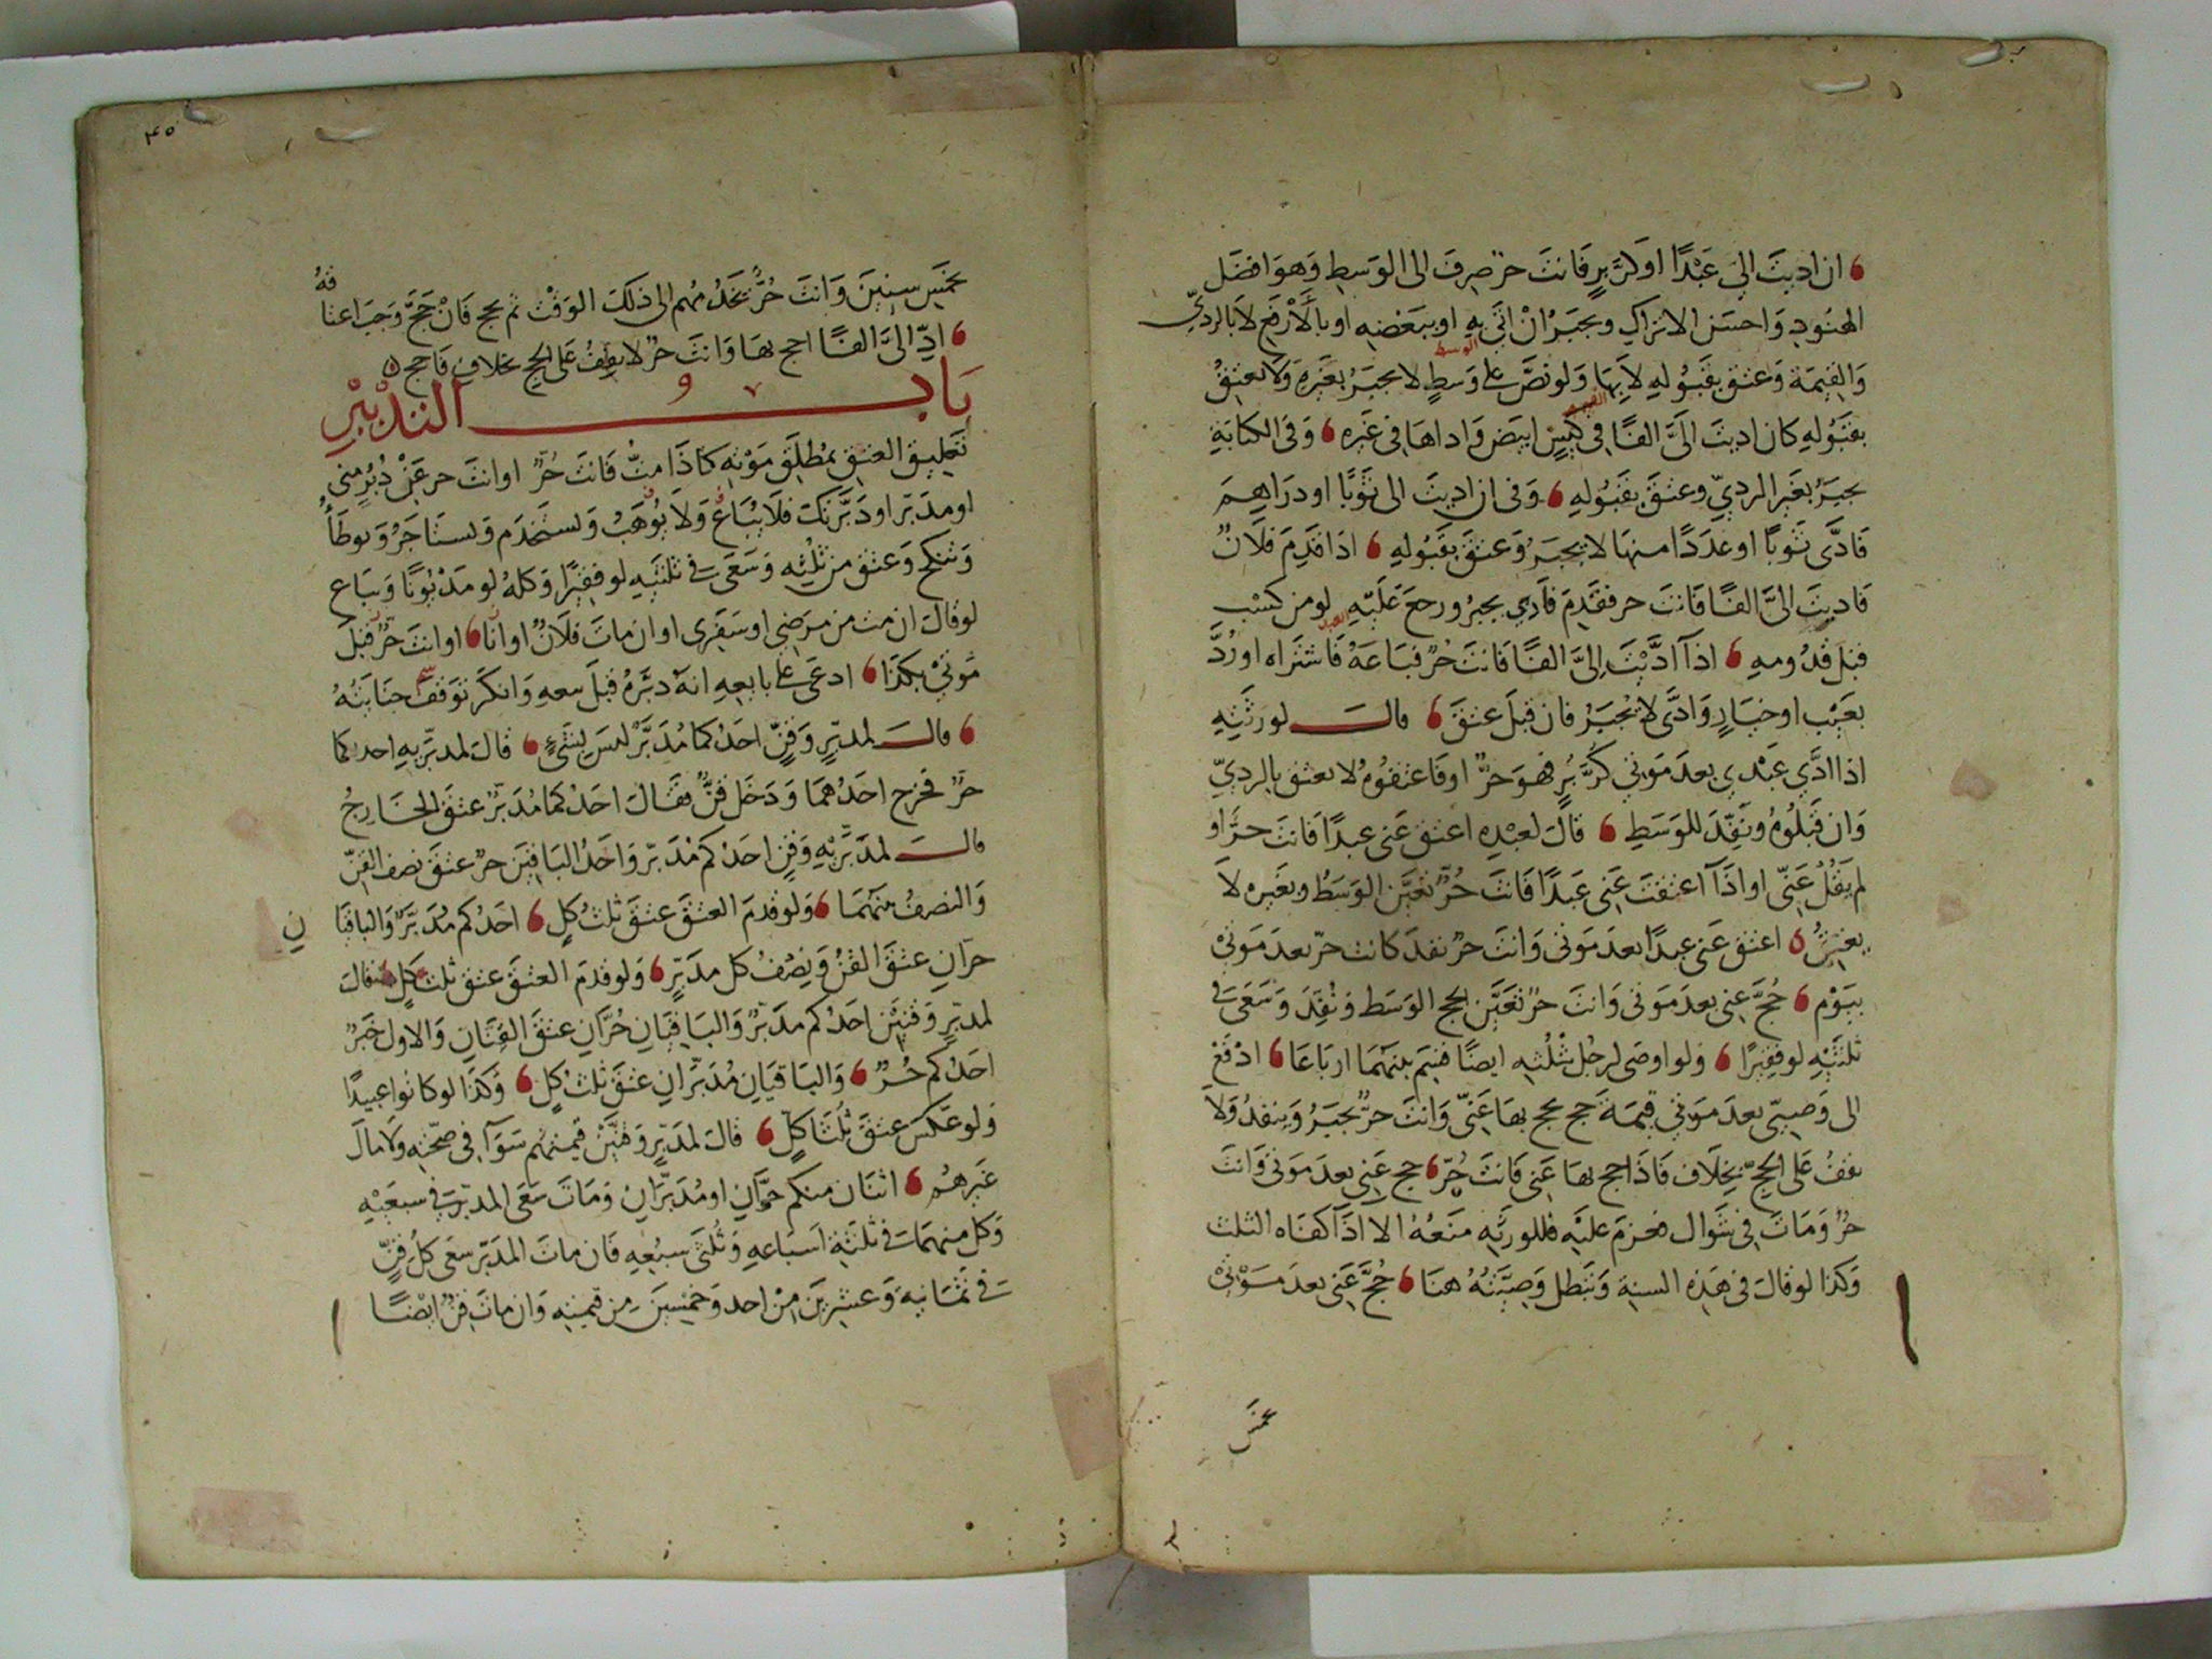 ان اديت الي عبدا او كر بر فانت حر صرف الى الوسط وهو افضل
الهنود واحسن الاتراك ويجبر ان اتى به او ببعضه او بالأرفع لا بالردي
والقيمة وعتق بقبوله لا بها ولو نص على وسط لا يجبر بغيره ولا يعتق
بقبوله كان اديت الىّ الفا في كيس ابيض واداها في غيره وفي الكتابة
يجبر بغير الردي وعتق بقبوله وفى ان اديت الى ثوبا او دراهم
فادى ثوبا او عددا منها لا يجبر وعتق بقبوله اذا قدم فلان
فاديت الىّ الفا فانت حر فقدم فادي يجبر ورجع عليه لو من كسب
قبل قدومه اذا اديت الىّ الفا فانت حر فباعه فاشتراه او رد
بعيب او خيار وادى لا يجبر فان قبل عتق قال لورثته
اذا ادي عبدي بعد موتي كر بر فهو حر او فاعتقوه لا يعتق بالردي
وان قبلوه ونفذ للوسط قال لعبده اعتق عني عبدا فانت حر او
لم يقل عني او اذا اعتقت عني عبدا فانت حر تعين الوسط وبغيره لا
يعتق اعتق عني عبدا بعد موتى وانت حر نفد كانت حر بعد موتي
بيوم حج عني بعد موتي وانت حر تعين لحج الوسط ونفذ وسعى في
ثلثيه لو فقيرا ولو اوصى لرجل بثلثه ايضا قيم بينهما ارباعا ادفع
الى وصيي بعد موتي قيمة حج يحج بها عني وانت حر يجبر وينفذ ولا
يقف على الحج بخلاف فاذا حج بها عني فانت حر حج عني بعد موتي وانت
حر ومات في شوال فعزم عليه فللورثه منعه الا اذا كفاه الثلث
وكذا لو قال في هذه السنة وتبطل وصيته هنا حج عني بعد موتي
بخمس سنين وانت حر يخدمهم الى ذلك الوقت ثم يحج فان حج وجب اعتاقه
ادّ الىّ الفا احج بها وانت حر لا يقف على الحج بخلاف فاحج
باب التدبير
تعليق العتق بمطلق موته كاذا مت فانت حر او انت حر عن دبر مني
او مدبر او دبرتك فلا يباع ولا يوهب ويستخدم ويستاجر وتوطأ
وتنكح وعتق من ثلثه وسعى في ثلثيه لو فقيرا وكله لو مديونا ويباع
لو قال ان مت من مرضي او سفري او ان مات فلان او انا او انت حر قبل
موتي بكذا ادعى على بايعه انه دبره قبل بيعه وانكر توقف جنايته
قال لمدبر وقن احدكما مدبر ليس بشيء قال لمدبريه احدكما
حر فخرج احدهما ودخل قن فقال احدكما مدبر عتق الخارج
قال لمدبريه وقن احدكم مدبر واحد الباقيين حر عتق نصف القن
والنصف منهما ولو قدم العتق عتق ثلث كل احدكم مدبر والباقيان
حران عتق القن ونصف كل مدبر ولو قدم العتق عتق ثلث كل قال
لمدبر وقنين احدكم مدبر والباقيان حران عتق القنان والاول خبر
احدكم حر والباقيان مدبران عتق ثلث كل وكذا لو كانوا عبيدا
ولو عكس عتق ثلثا كل قال لمدبر وقنين قيمتهم سوآ في صحته ولا مال
غيرهم اثنان منكم حران او مدبران ومات سعى المدبر في سبعيه
وكل منهما في ثلثة اسباعه وثلثى سبعه فان مات المدبر سعى كل قن
في ثمانيه وعشرين من احد وخمسين من قيمته وان مات قن ايضا